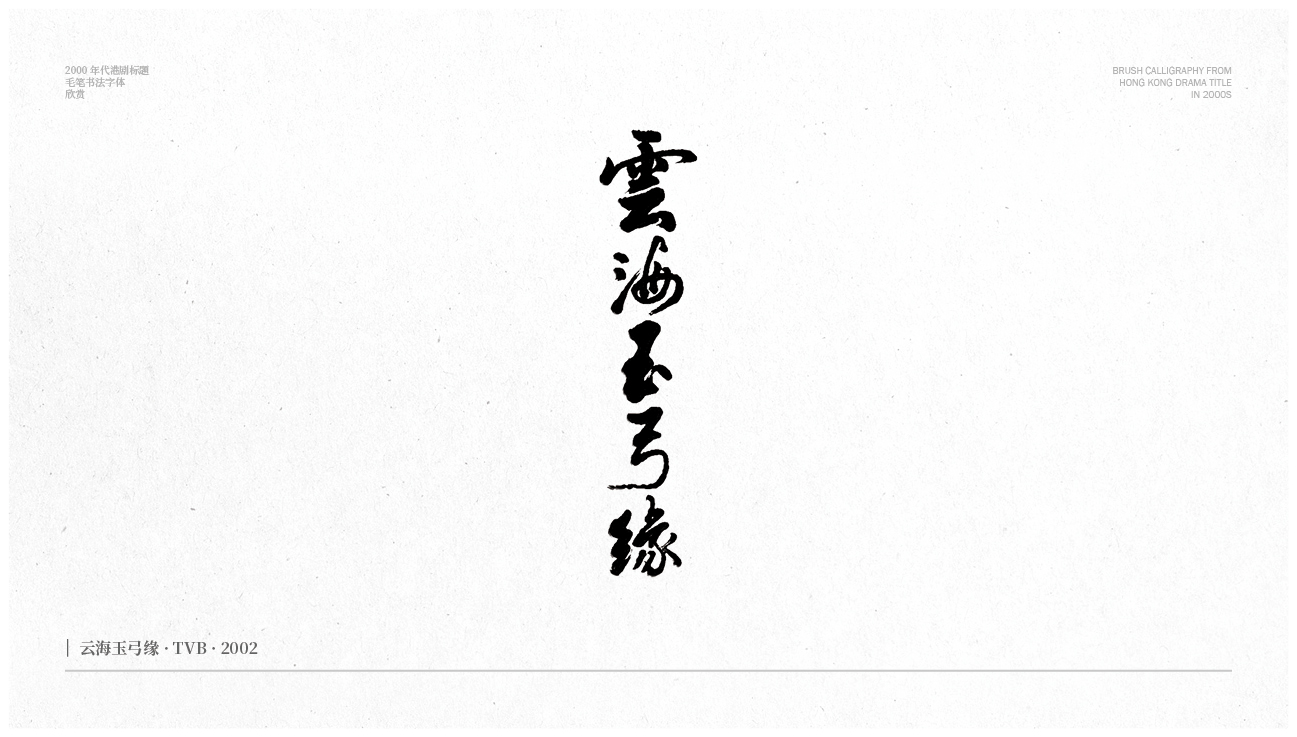 2000 年代港剧标题
毛笔书法字体
欣赏
BRUSH CALLIGRAPHY FROM
HONG KONG DRAMA TITLE
IN 2000S
雲海玉弓緣
云海玉弓缘 · TVB · 2002